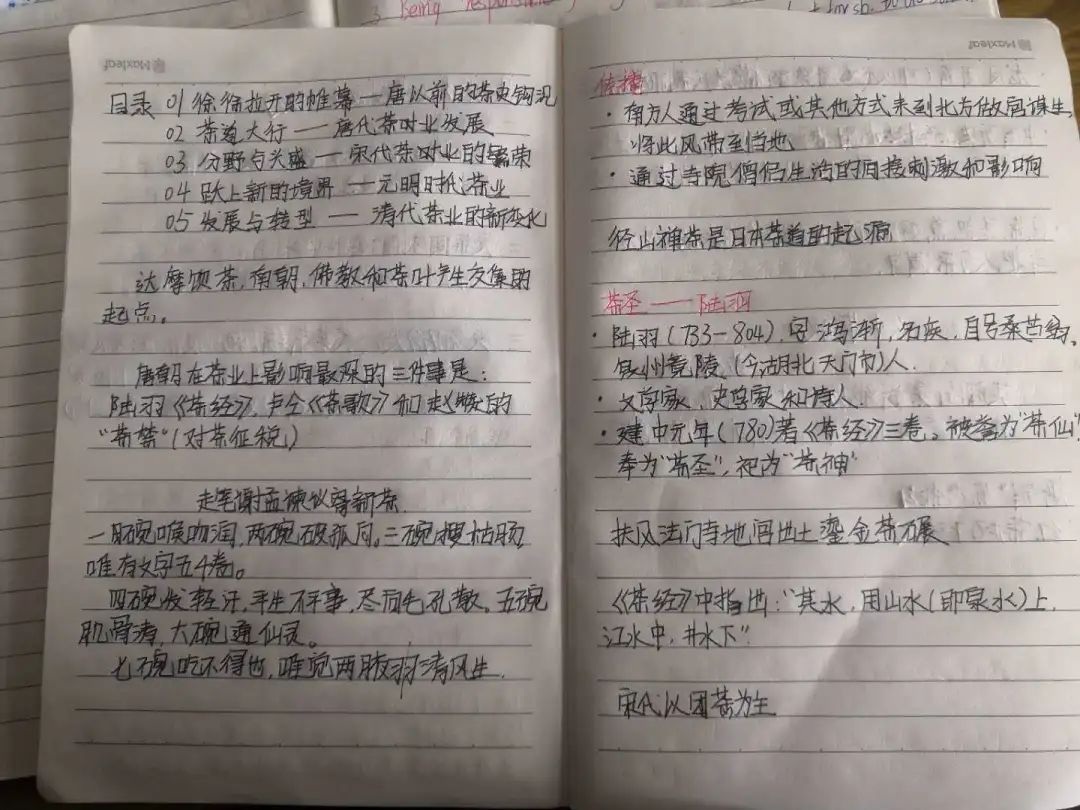 3 Being
Maxleaf
目录 01 徐徐拉开的帷幕——唐以前的茶史钩沉
02 茶道大行——唐代茶叶业发展
03 分野与兴盛——宋代茶叶业的繁荣
04 跃上新的境界——元明时代茶业
05 发展与转型——清代茶业的新变化
达摩饮茶,南朝,佛教和茶叶产生交集的
起点。
唐朝在茶业上影响最深的三件事是:
陆羽《茶经》,卢仝《茶歌》和赵赞的
"茶禁"(对茶征税)
走笔谢孟谏议寄新茶
一碗喉吻润,两碗破孤闷。三碗搜枯肠,
唯有文字五千卷。
四碗发轻汗,平生不平事,尽向毛孔散。五碗
肌骨清,六碗通仙灵。
七碗吃不得也,唯觉两腋习习清风生.
Maxleaf
传播
·南方人通过考试或其他方式来到北方做官谋生
将此风带到当地
·通过寺院僧侣生活的间接刺激和影响
径山禅茶是日本茶道的起源
茶圣——陆羽
·陆羽(733-804),字鸿渐,名疾,自号桑苎翁,
复州竟陵(今湖北天门市)人.
·文学家,史学家和诗人.
·建中元年(780)著《茶经》三卷。被誉为"茶仙"
奉为"茶圣",祀为"茶神"
扶风法门寺地宫出土鎏金茶碾
《茶经》中指出:"其水,用山水(即泉水)上,
江水中,井水下"
宋代以团茶为主